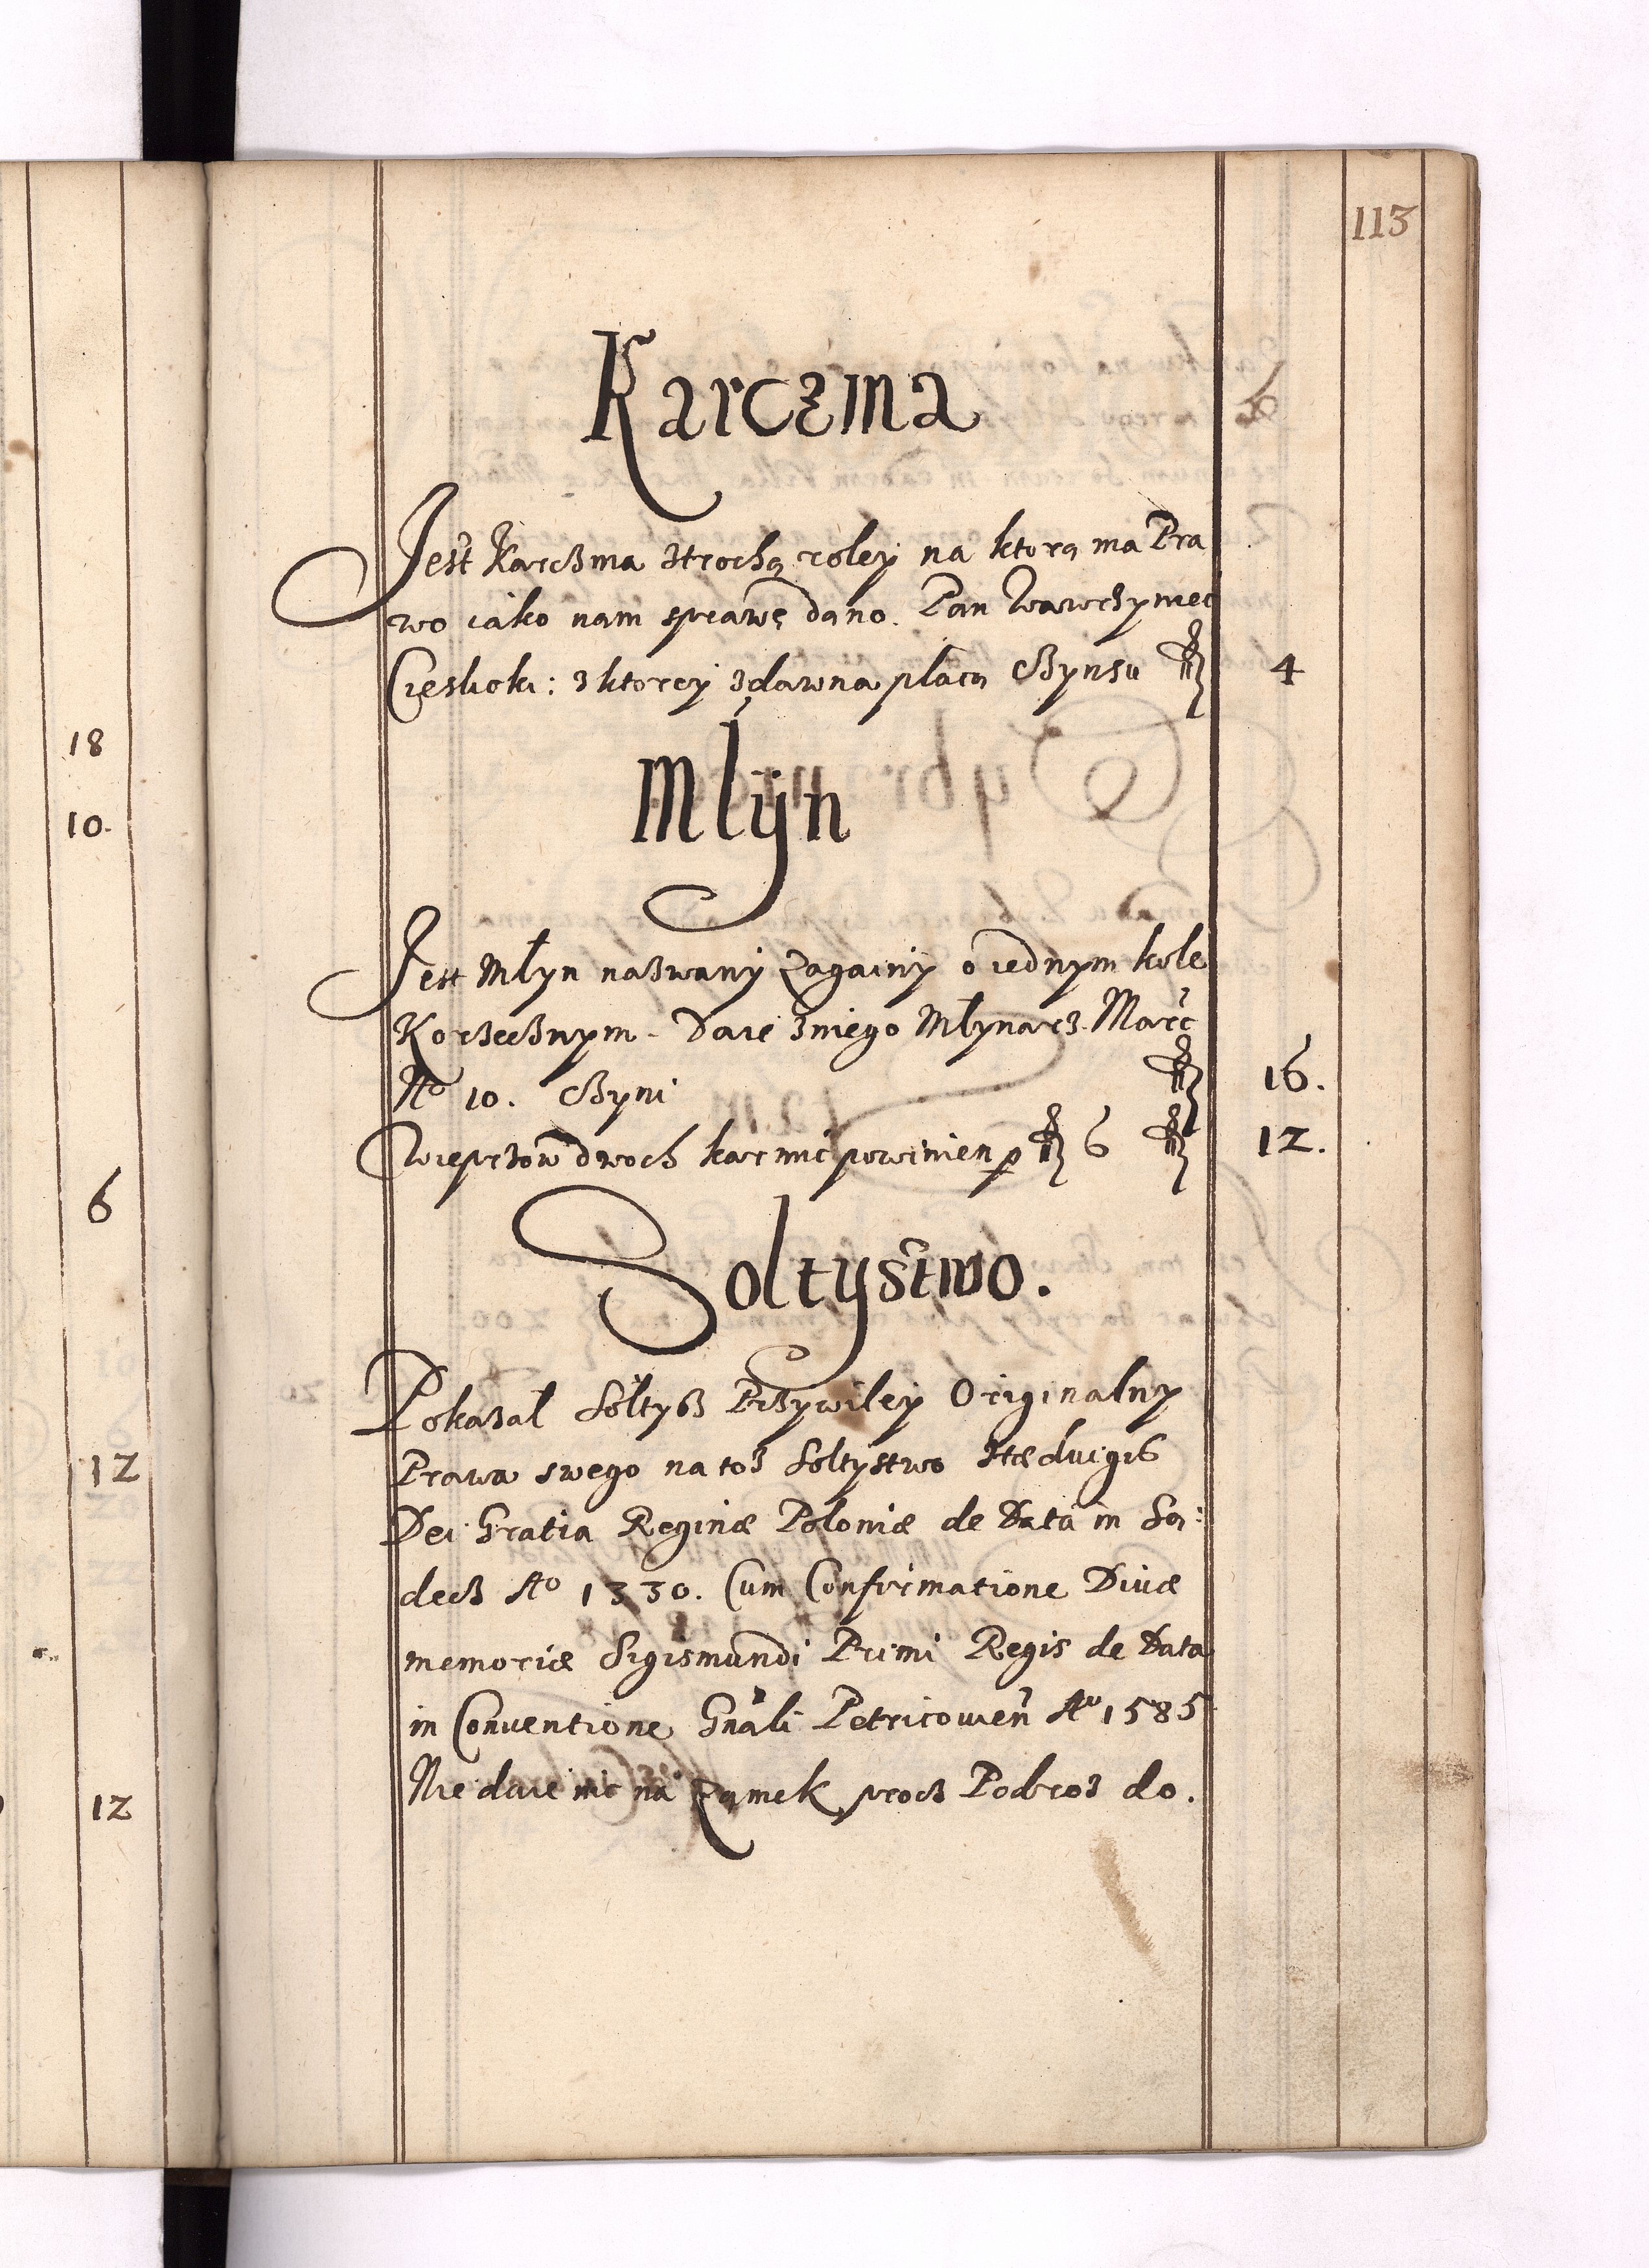 113
Karczma
Jest Karczma ztrochą roley na ktorą ma Pra
wo iako nam sprawę dano. Pan Wawrzyniec
Cieslicki: z ktorey zdawna płacą Czynsu ƒl 4
Młyn
Jest Młyn nazwany Zagainy o iednym kole
Korzecznym. Daie zniego Młynarz Marc̃
No 10. Czyni ƒl 16.
Wieprzow dwoch karmic powinien p ƒl 6 ƒl 12.
Soltystwo.
Pokazal Soltys Przywiley Originalny
Prawa swego na toz Soltystwo Hædvigis
Dei Gratia Reginæ Poloniæ de Data in Są:
decz Ao 1330. Cum Confirmatione Divæ
memoriæ Sigismundi Primi Regis de Data
in Conventione Gnãli Petricowieñ Ao 1585
Nie daie nic na Zamek procz Podroz do.
18
10.
6
12
12